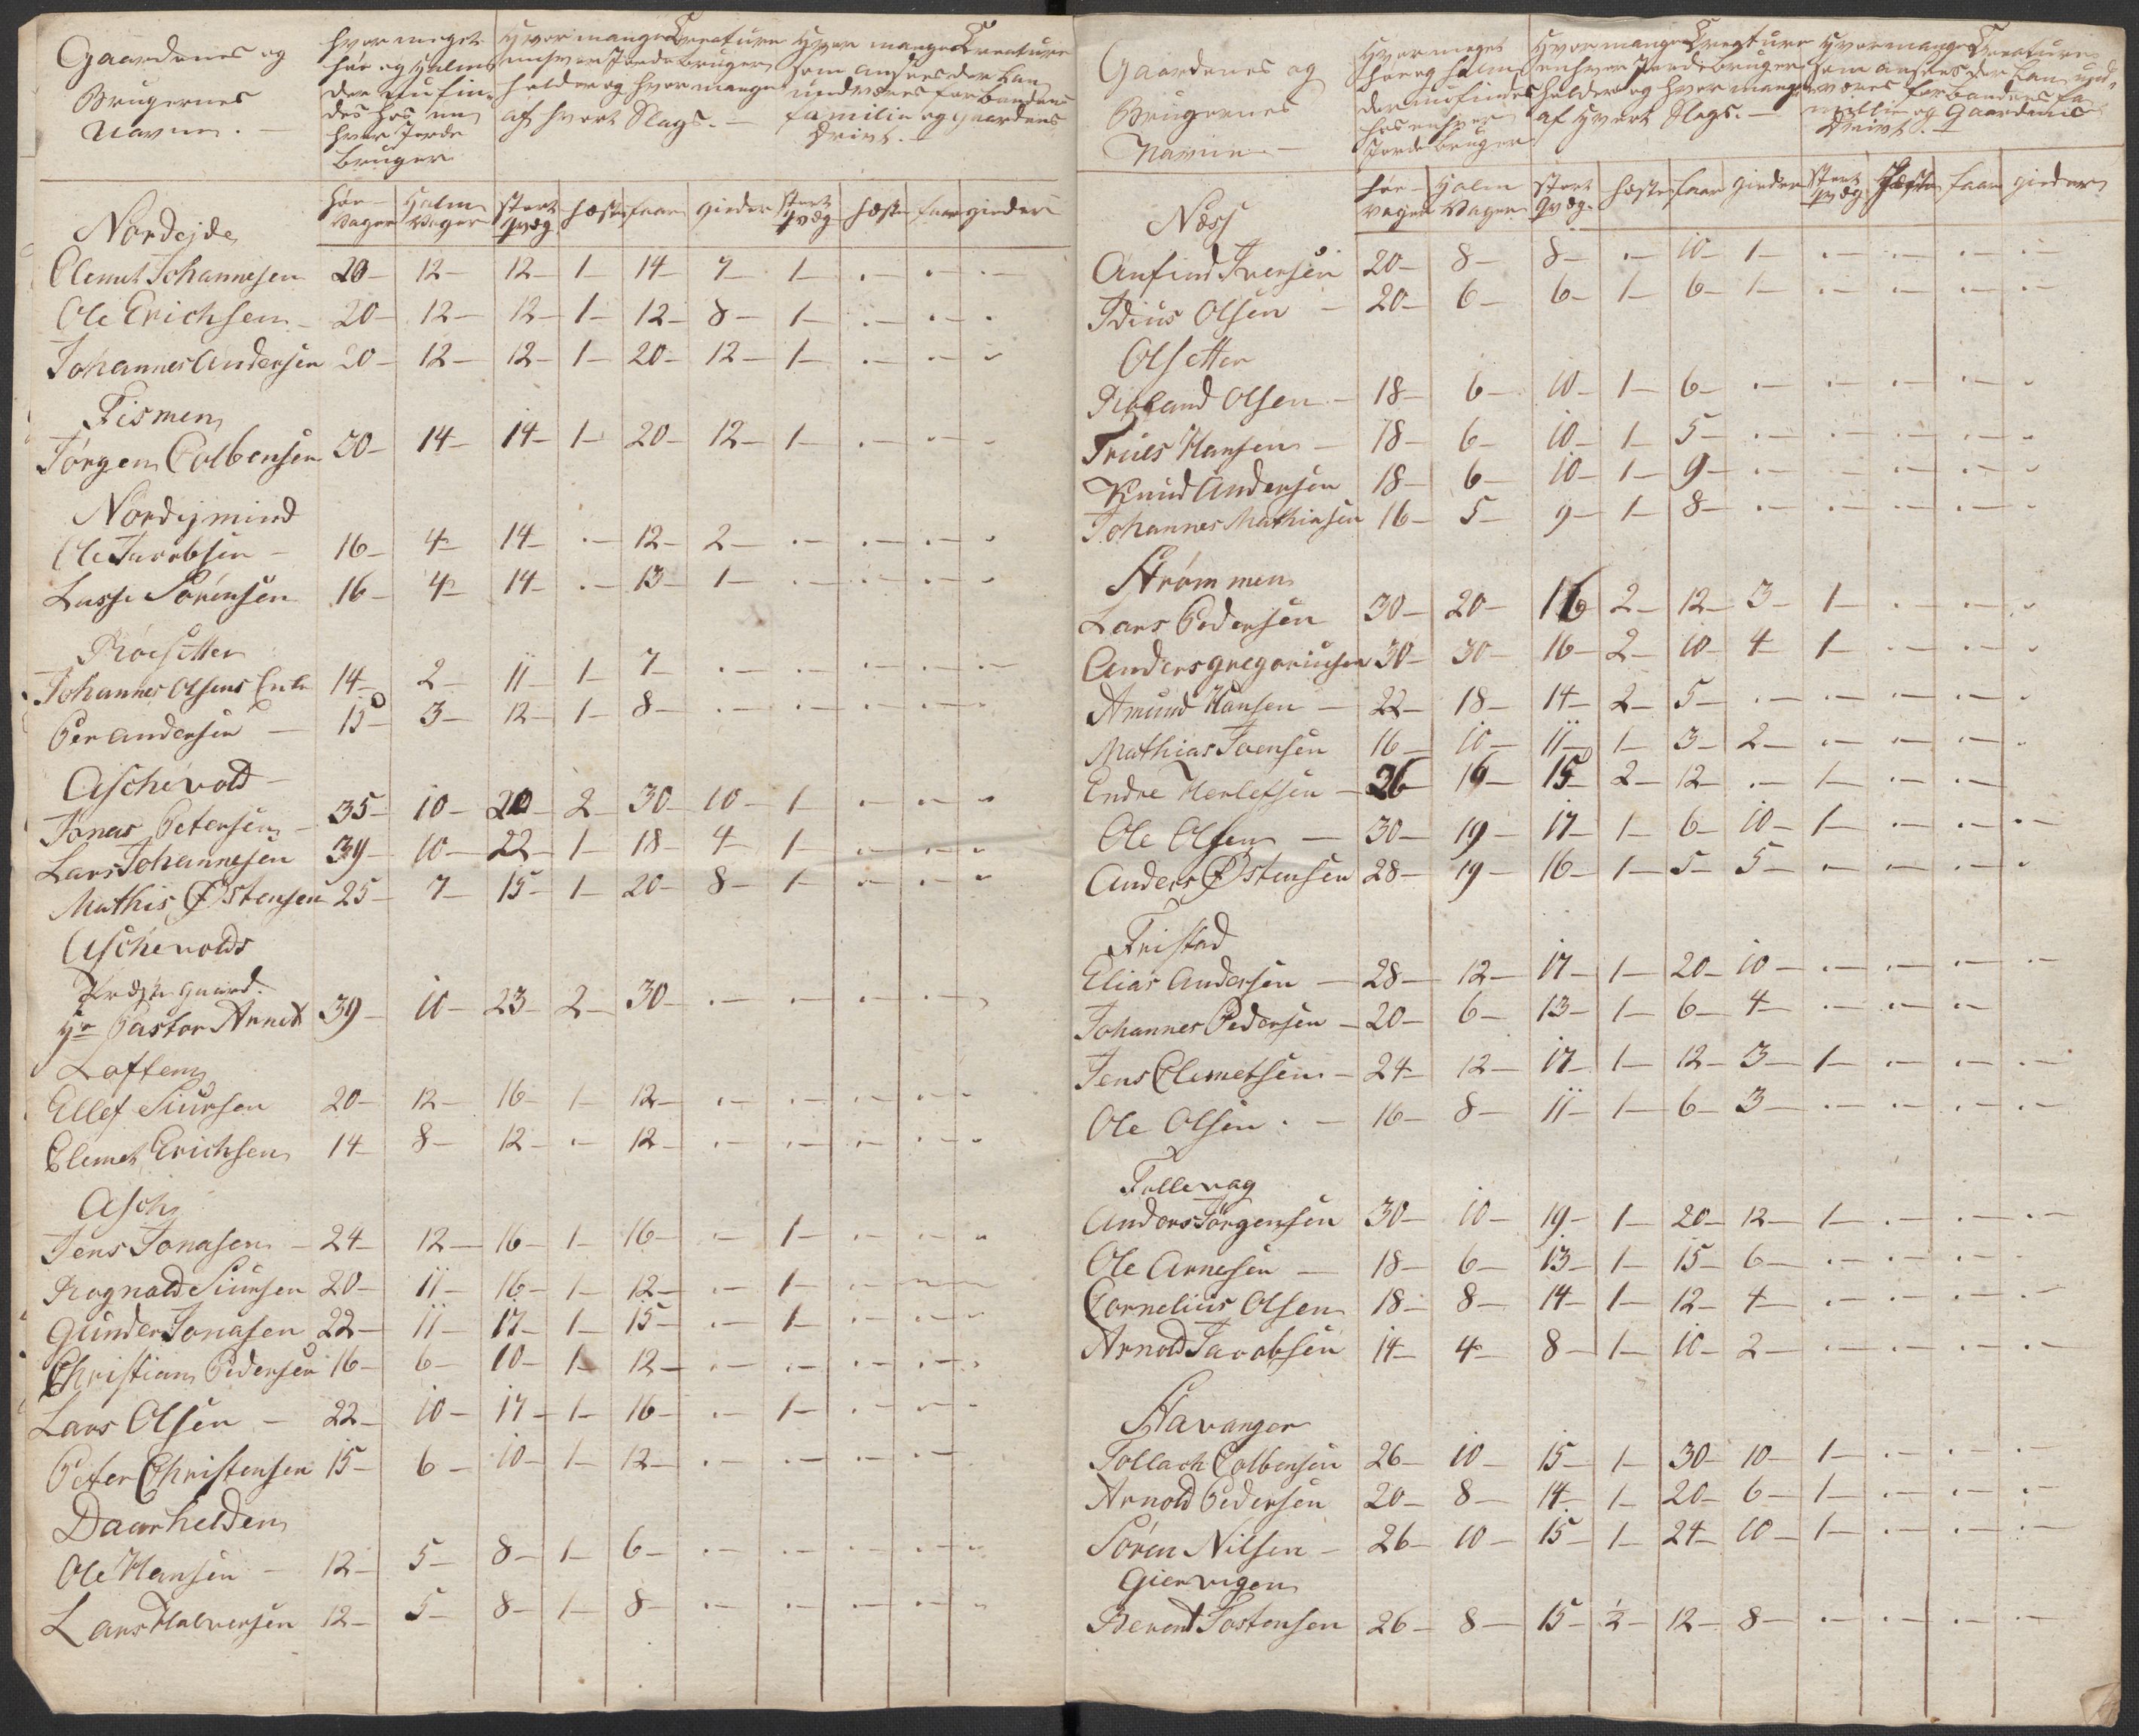 Gaardenes og
Brugernes
Navne. —
hvor meget
høe og Halm
der nu fin-
des hos en
hver Jorde
bruger
Hvor mange Creature
enhver Jordebruger
holder og hvor mange
af hvert Slags. —
Hvor mange Creature
som ansees der kan
undværes for bondens
familie og gaardens
Drivt. —
høe Vager | Halm Vager | stort qvæg | hæste | faar | gieder | stort qvæg | hæste | faar | gieder
Nordeide
Clemet Johannesen 20 — 12 — 12 — 1 — 14 — 7 — 1 — . — . — . —
Ole Erichsen — 20 — 12 — 12 — 1 — 12 — 8 — 1 — . — . — .
Johannes Andersen 20 — 12 — 12 — 1 — 20 — 12 — 1 — . — . — .
Fismen
Jørgen Colbensen 30 — 14 — 14 — 1 — 20 — 12 — 1 — . — . — .
Nordigmind
Ole Jacobsen — 16 — 4 — 14 — . — 12 — 2 — . — . — . — .
Lasse Sørensen 16 — 4 — 14 — . — 13 — 1 — . — . — . — .
Røesetter
Johannes Olsens Enke 14 — 2 — 11 — 1 — 7 — . — . — . — . — . —
Per andersen — 15 — 3 — 12 — 1 — 8 — . — . — . — . — .
Aschevold —
Jonas Petersen — 35 — 10 — 20 — 2 — 30 — 10 — 1 — . — . — .
Lars Johannesen 39 — 10 — 22 — 1 — 18 — 4 — 1 — . — . — .
Mathis Østensen 25 — 7 — 15 — 1 — 20 — 8 — 1 — . — . — .
Aschevolds
Præste gaard.
Hr Pastor Arnet 39 — 10 — 23 — 2 — 30 — . — . — . — . — .
Loften
Ellef Siursen 20 — 12 — 16 — 1 — 12 — . — . — . — . — .
Clemet Erichsen 14 — 8 — 12 — . — 12 — . — . — . — . — .
Asch
Jens Jonasen — 24 — 12 — 16 — 1 — 16 — . — 1 — . — . — .
Rognald Siursen 20 — 11 — 16 — 1 — 12 — . — 1 — . — . — . —
Gunder Jonasen 22 — 11 — 17 — 1 — 15 — . — 1 — . — . — .
Christian Pedersen 16 — 6 — 10 — 1 — 12 — . — . — . — . — .
Lars Olsen — 22 — 10 — 17 — 1 — 16 — . — 1 — . — . — .
Peter Christensen 15 — 6 — 10 — 1 — 12 — . — . — . — . —
Daarhelden
Ole Hansen — 12 — 5 — 8 — 1 — 6 — . — . — . — . — .
Lars Halversen 12 — 5 — 8 — 1 — 8 — . — . — . — . — .
Gaardenes og
Brugernes
Navne —
Hvor meget
høe og halm
der nu findes
hos enhver
Jorde bruger
Hvor mange Creature
enhver Jorde bruger
holder og hvor mange
af Hvert Slags. —
Hvor mange Creature
som ansees der kan und-
væres for bondens fa-
milie og Gaardens
Drivt. —
høe vager | Halm Vager | stort qvæg | hæste | faar | gieder | stort qvæg | Hæste | faar | gieder
Næss
Anfind Iversen 20 — 8 — 8 — . — 10 — 1 — . — . — . — . —
Idius Olsen — 20 — 6 — 6 — 1 — 6 — 1 — . — . — . — . —
Olsetter
Roland Olsen — 18 — 6 — 10 — 1 — 6 — . — . — . — . — .
Truls Hansen — 18 — 6 — 10 — 1 — 5 — . — . — . — . — .
Knud Andersen 18 — 6 — 10 — 1 — 9 — . — . — . — . — .
Johannes Mathiasen 16 — 5 — 9 — 1 — 8 — . — . — . — . — .
Strømmen
Lars Pedersen 30 — 20 — 16 2 — 12 — 3 — 1 — . — . — .
Anders gregoriusen 30 — 30 — 16 — 2 — 10 — 4 — 1 — . — . — .
Amund Hansen — 22 — 18 — 14 — 2 — 5 — . — . — . — . — .
Mathias Ivensen 16 — 10 — 11 — 1 — 3 — 2 — . — . — . — .
Endre Herlefsen — 26 — 19 — 15 2 — 12 — . — 1 — . — . —
Ole Olsen — 30 — 19 — 17 — 1 — 6 — 10 — 1 — . — . — . —
Anders Østensen 28 — 19 — 16 — 1 — 5 — 5 — . — . — . — .
Fristad
Elias Andersen — 28 — 12 — 17 — 1 — 20 — 10 — . — . — . — . —
Johannes Pedersen — 20 — 6 — 13 — 1 — 6 — 4 — . — . — . —
Jens Clemetsen — 24 — 12 — 17 — 1 — 12 — 3 — 1 — . — . — . —
Ole Olsen . — 16 — 8 — 11 — 1 — 6 — 3 — . — . — . — . —
Follevag
Anders Jørgensen 30 — 10 — 19 — 1 — 20 — 12 — 1 — . — . — . —
Ole Arnesen — 18 — 6 — 13 — 1 — 15 — 6 — . — . — . — .
Cornelius Olsen 18 — 8 — 14 — 1 — 12 — 4 — . — . — . — . —
Arnold Jacobsen 14 — 4 — 8 — 1 — 10 — 2 — . — . — . — . —
Stavanger
Tollach Colbensen 26 — 10 — 15 — 1 — 30 — 10 — 1 — . — . — . —
Arnold Pedersen 20 — 8 — 14 — 1 — 20 — 6 — 1 — . — . — . —
Søren Nilsen — 26 — 10 — 15 — 1 — 24 — 10 — 1 — . — . — . —
Giervigen
Berent Tostensen 26 — 8 — 15 — ½ — 12 — 8 — . — . — . — . —